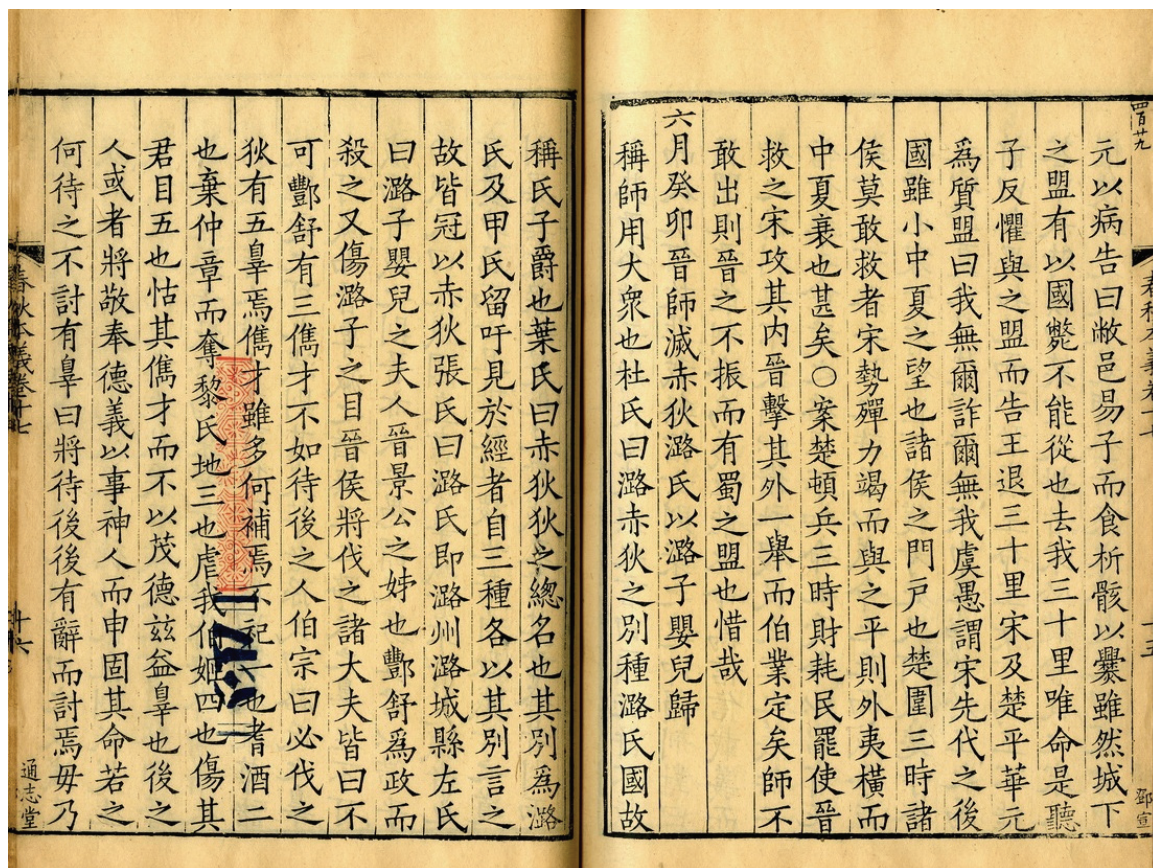 四百廿九
元以病告曰敝邑易子而食析骸以爨雖然城下
之盟有以國斃不能從也去我三十里唯命是聽
子反懼與之盟而告王退三十里宋及楚平華元
為質盟曰我無爾詐爾無我虞愚謂宋先代之後
國雖小中夏之望也諸侯之門戶也楚圍三時諸
侯莫敢救者宋勢殫力竭而與之平則外夷橫而
中夏衰也甚矣○案楚頓兵三時財耗民罷使晉
救之宋攻其內晉擊其外一舉而伯業定矣師不
敢出則晉之不振而有蜀之盟也惜哉
六月癸卯晉師滅赤狄潞氏以潞子嬰兒歸
稱師用大衆也杜氏曰潞赤狄之別種潞氏國故
稱氏子爵也葉氏曰赤狄狄之總名也其別為潞
氏及甲氏留吁見於經者自三種各以其別言之
故皆冠以赤狄張氏曰潞氏即潞州潞城縣左氏
曰潞子嬰兒之夫人晉景公之姊也酆舒為政而
殺之又傷潞子之目晉侯將伐之諸大夫皆曰不
可酆舒有三儁才不如待後之人伯宗曰必伐之
狄有五辠焉儁才雖多何補焉不祀一也耆酒二
也棄仲章而奪黎氏地三也虐我伯姬四也傷其
君目五也怙其儁才而不以茂德茲益辠也後之
人或者將敬奉德義以事神人而申固其命若之
何待之不討有辠曰將待後後有辭而討焉毋乃
春秋本義卷十七
通志堂